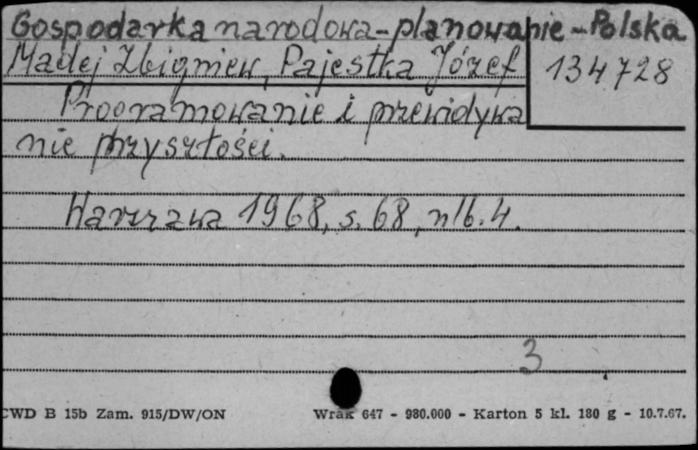 Gospodarka narodowa - planowanie - Polska
Madej Zbigniew, Pajestka Józef
134728
Programowanie i przewidywa
nie przyszłości.
Warszawa 1968, s. 68, nlb. 4.
3
CWD B 15b Zam. 915/DW/ON
Wrak 647 - 980.000 - Karton 5 kl. 180 g - 10.7.67.